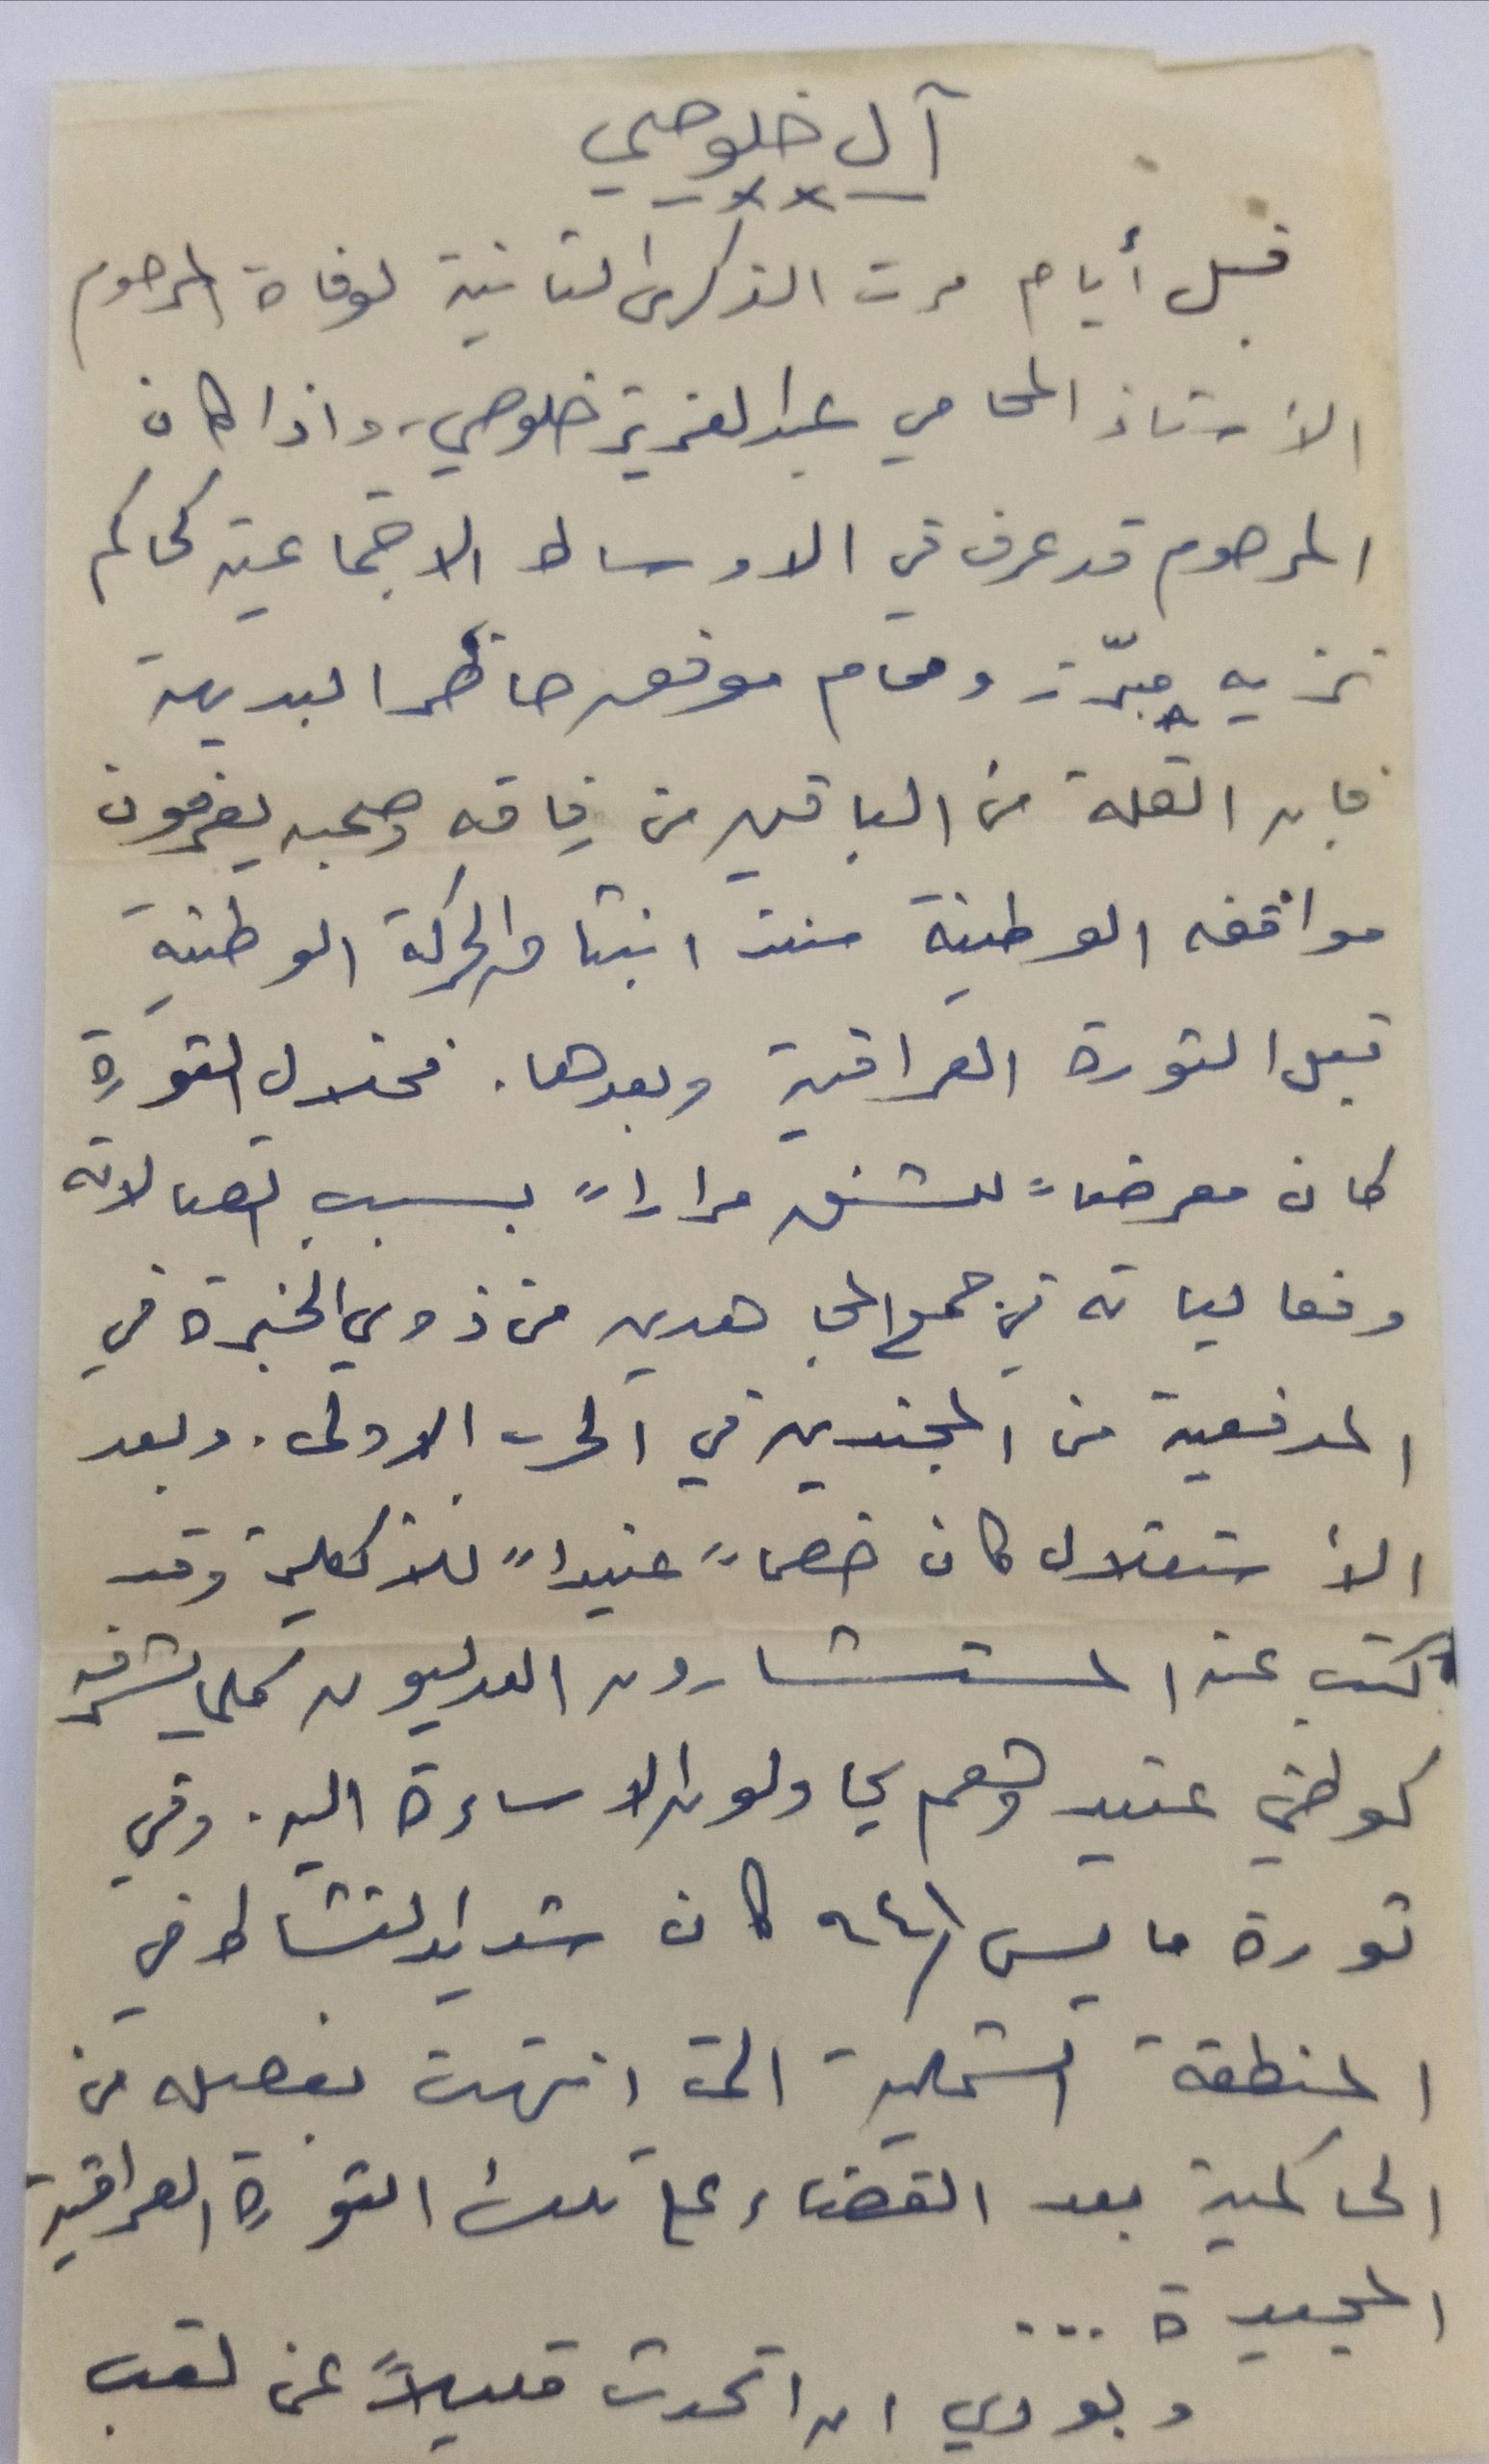 آل خلوصي
قبل أيام مرت الذكرى الثانية لوفاة المرحوم
الأستاذ المحامي عبد العزيز خلوصي، واذا كان
المرحوم قد عرف في الاوساط الاجتماعية كحاكم
نزيه مبرّز ومحام موفق حاظر البديهة
فان القلة من الباقين من رفاقه وصحبه يعرفون
مواقفه الوطنية منذ انبثاق الحركة الوطنية
قبل الثورة العراقية وبعدها. فخلال الثورة
كان معرضاً للشنق مراراً بسبب اتصالاته
وفعالياته في جمع المجاهدين من ذوي الخبرة في
المدفعية من المجندين في الحرب الاولى. وبعد
الأستقلال كان خصماً عنيداً للأنكليز وقد
كتب عنه المستشارون العدليون كلما يشرفه
كوطني عنيد وهم يحاولون الاساءة اليه. وفي
ثورة مايس ٩٤١ كان شديد النشاط في
المنطقة الشمالية التي انتهت بفصله من
الحاكمية بعد القضاء على تلك الثورة العراقية
المجيدة ...
وبودي ان اتحدث قليلاً عن لقب